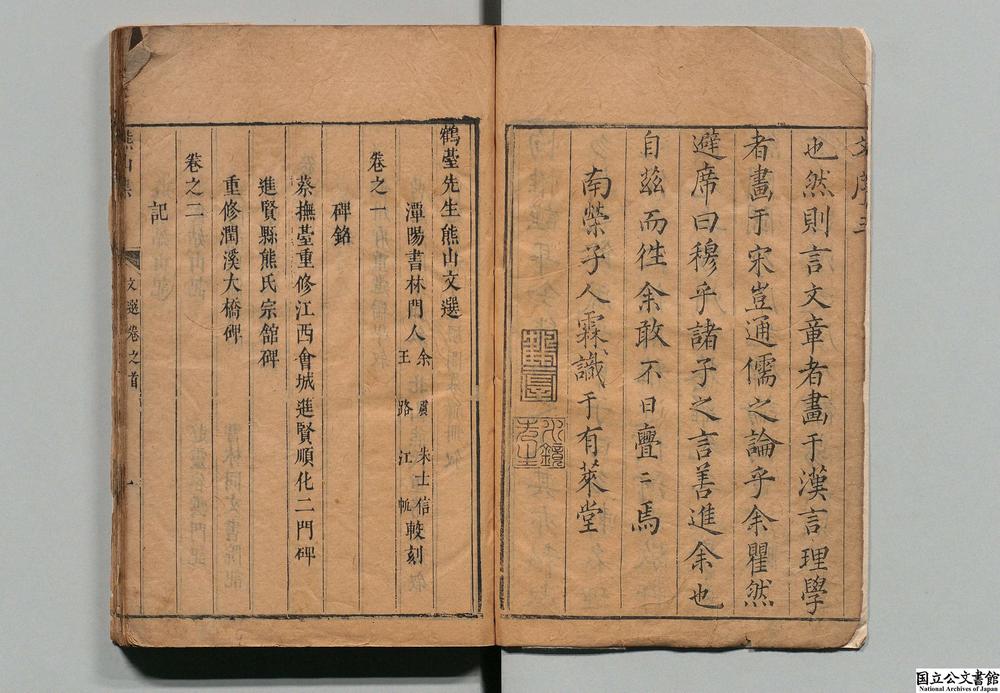 也然則言文章者畫于漢言理學
者畫于宋豈通儒之論乎余瞿然
避席曰穆乎諸子之言善進余也
自茲而徃余敢不日亹〻焉
南榮子人霖識于有萊堂
鶴臺先生熊山文選
潭陽書林門人
余
朱士信
王
路
江
較刻
卷之一
碑銘
蔡撫臺重修江西會城進賢順化二門碑
進賢縣熊氏宗舘碑
重修潤溪大橋碑
卷之二
記
文選卷之首
一
国立公文書館
National Archives of Japan